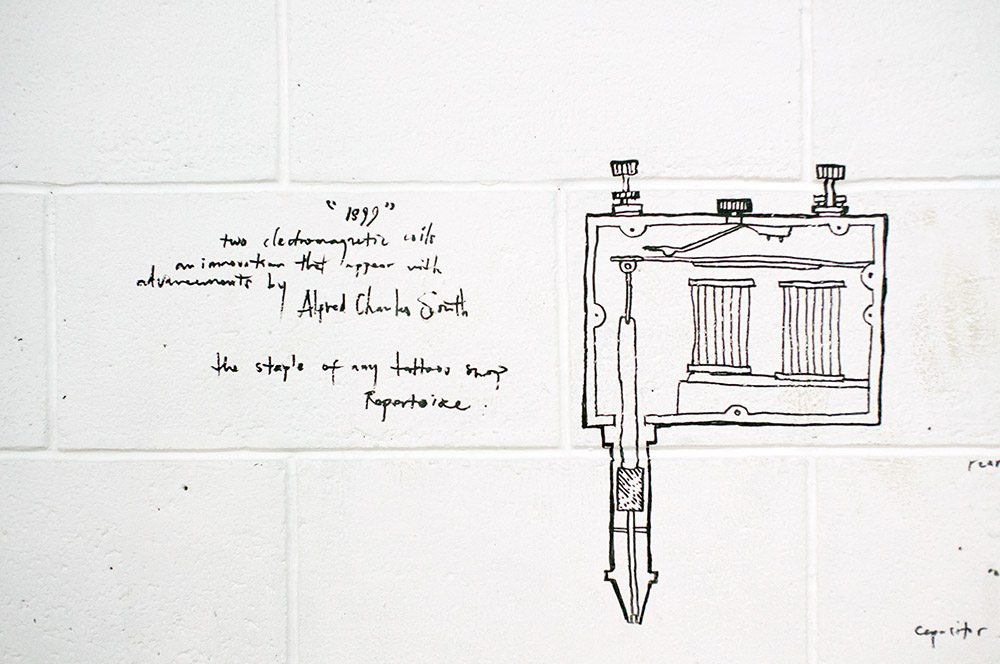 "1899"
two electromagnetic coils
an innovation that appear with
advancements by
Alfred Charles South
the staple of any tattoo shop
Repertoire.
capacitor